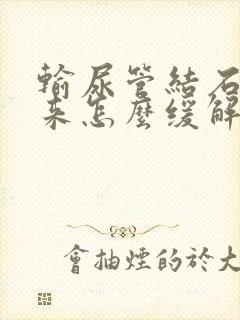 輸尿管結石
來怎麼緩解
會抽煙的於大